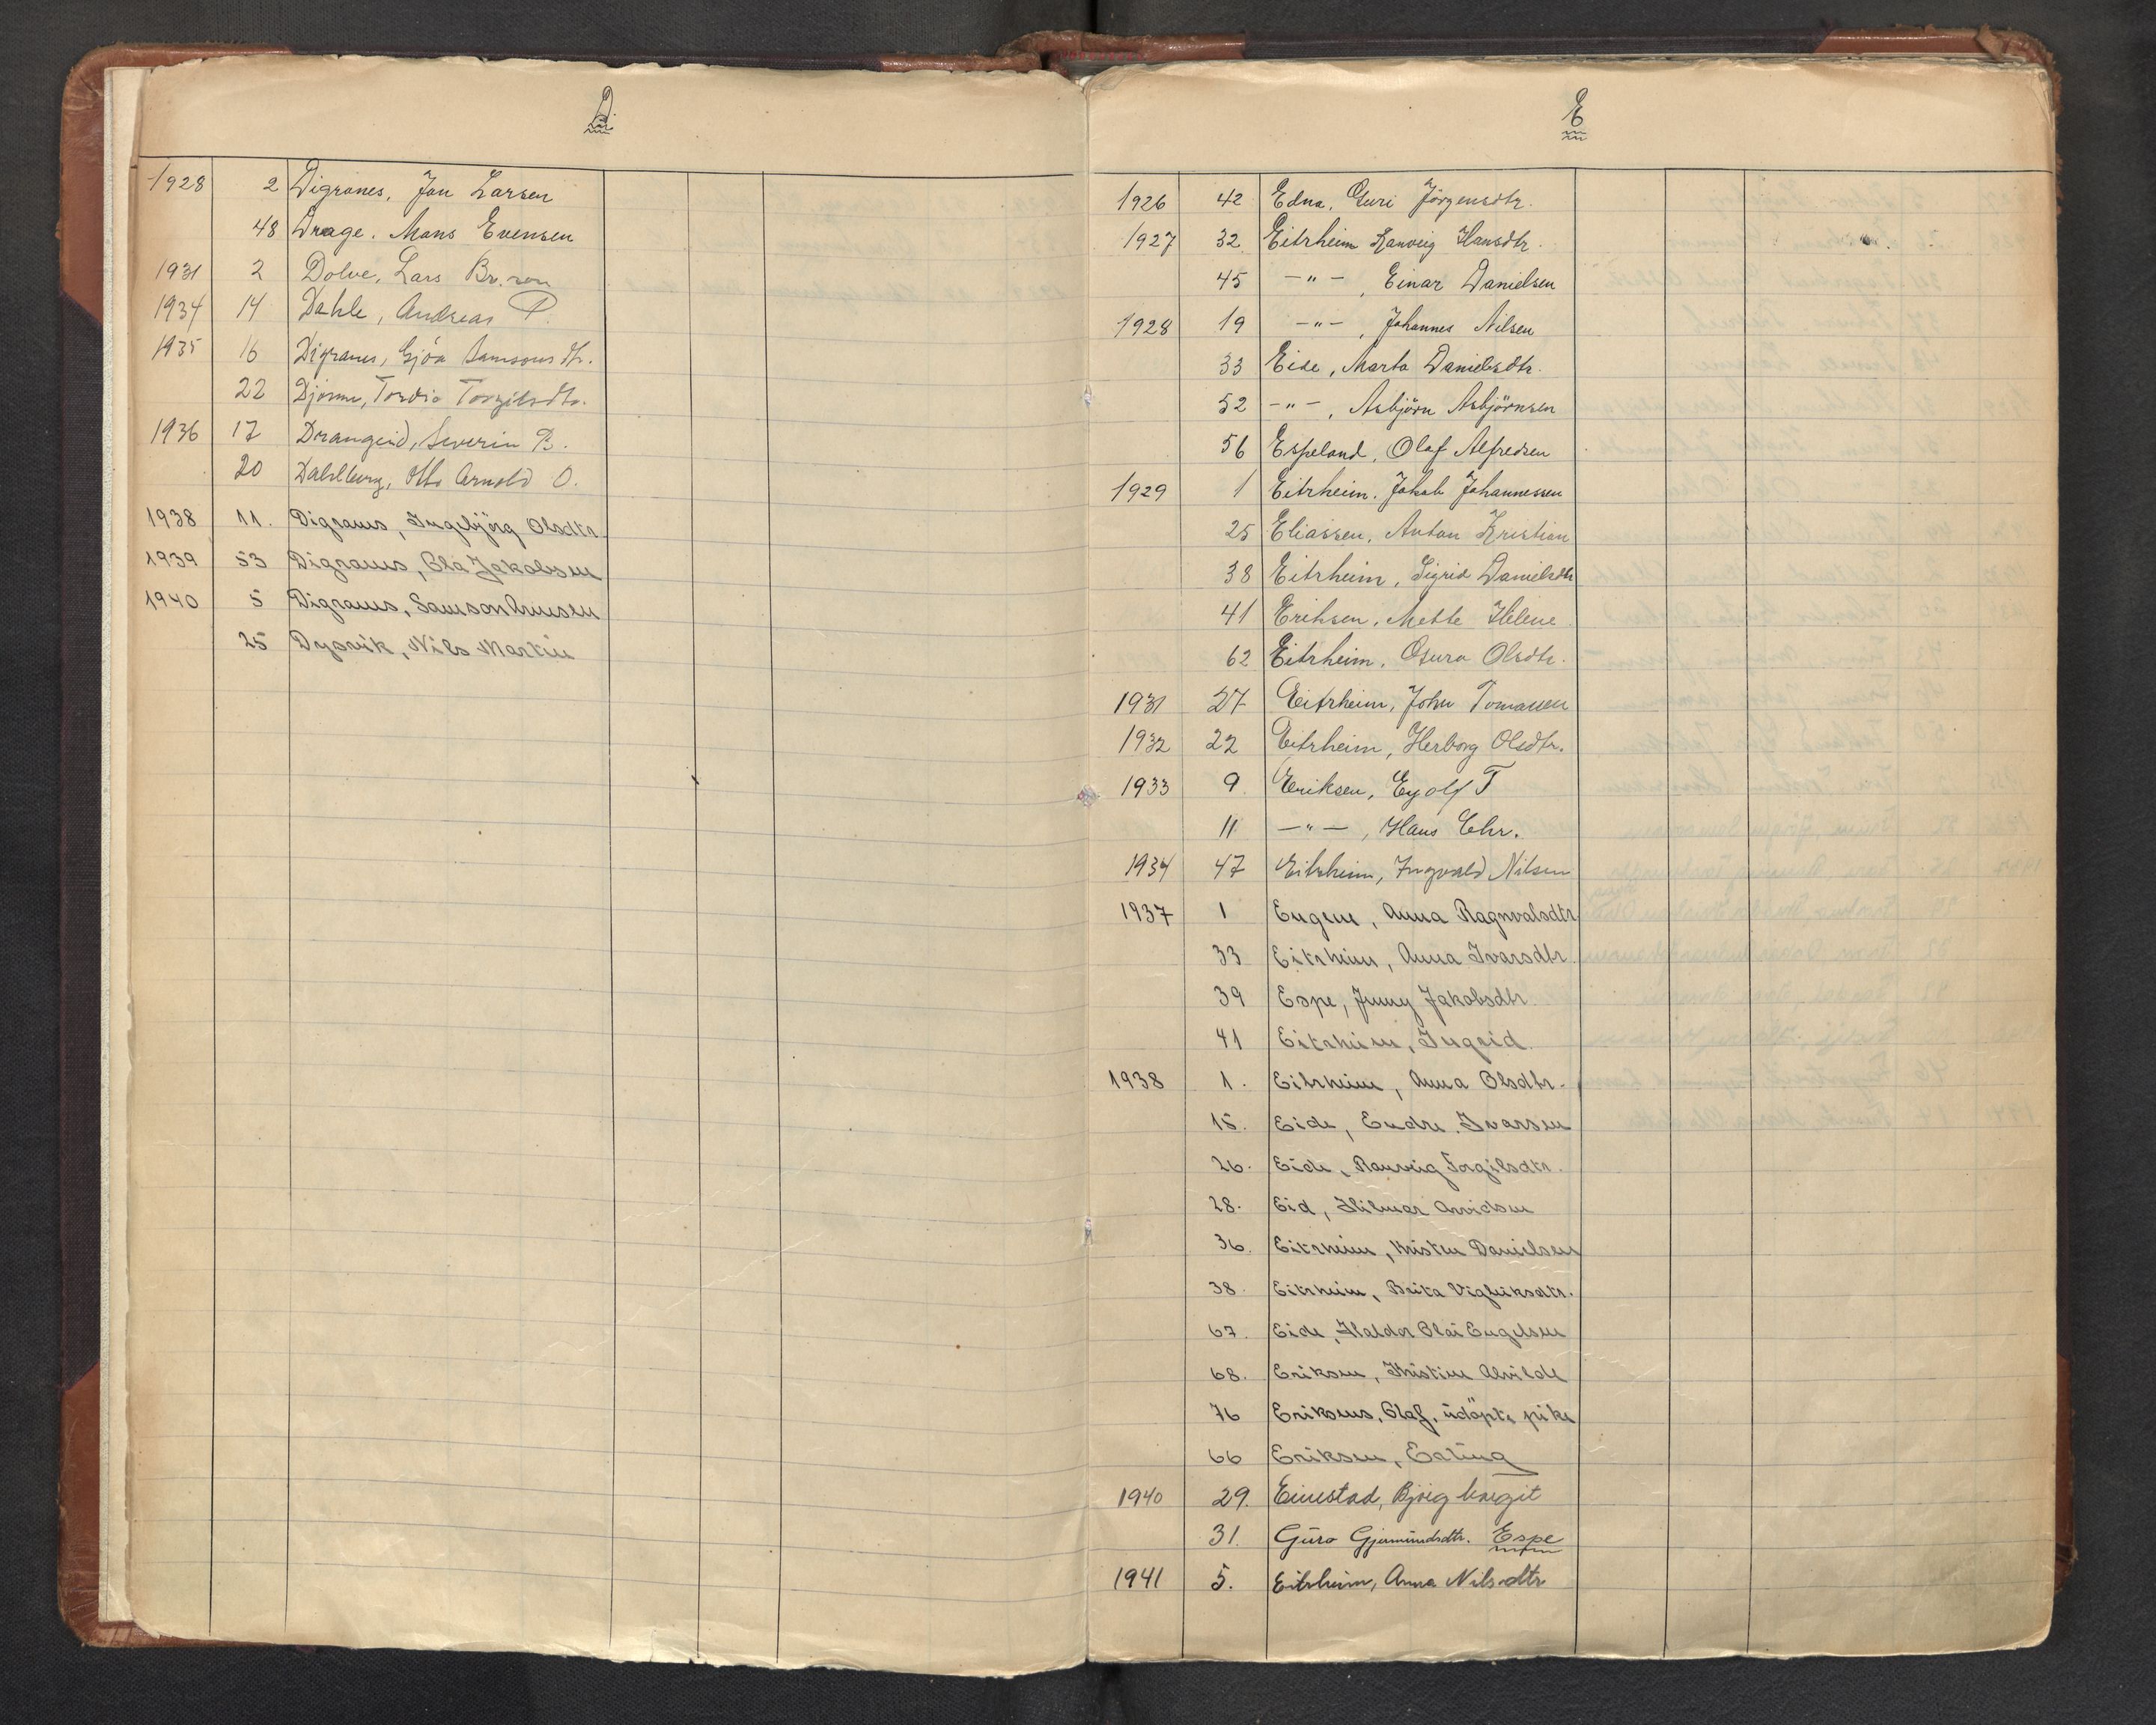 D
1928 2 Digranes, Jon Larsen
48 Drage. Mons Evensen
1931 2 Dolve, Lars Br.son
1934 14 Dahle, Andreas P.
1935 16 Digranes, Gjöa Samsonsdtr.
22 Djönne, Tordis Torgilsdtr.
1936 17 Drangeid, Severin B.
20 Dahlberg, Otto Arnold O.
1938 11. Digranes, Ingebjörg Olsdtr
1939 53 Digranes, Ola Jakobsen
1940 5 Digranes, Samson
25 Dysvik, Nils Martin
E
1926 42 Edna, Guri Jörgensdtr.
1927 32 Eitrheim Ranveig Hansdtr.
45 -"-, Einar Danielsen
1928 19 -"-, Johannes Nilsen
33 Eide, Marta Danielsdtr.
52 -"-, Asbjörn Asbjörnsen
56 Espeland, Olaf Alfredsen
1929 1 Eitrheim. Jakob Johannessen
25 Eliassen, Anton Kristian
38 Eitrheim, Sigrid Danielsdtr
41 Eriksen, Mette Helene
62 Eitrheim, Guro Olsdtr.
1931 27 Eitrheim, John Tomassen
1932 22 Eitrheim, Herborg Olsdtr.
1933 9. Eriksen, Eyolf T
11 -"-, Hans Chr.
1934 47 Eitrheim, Ingvald Nilsen
1937 1 Eugene, Anna Ragnvalsdtr
33 Eitrheim, Anna Ivarsdtr.
39 Espe, Jenny Jakobsdtr.
41 Eitrheim, Ingrid.
1938 1. Eitrheim, Anna Olsdtr.
15. Eide, Endre Ivarsen
26. Eide, Ranveig Torgilsdtr.
28. Eid, Hilmar Arvidsen
36. Eitrheim, Kristen Danielsen
38. Eitrheim, Brita Vigleiksdtr.
67. Eide, Haldor Olai Engelsen
68. Eriksen, Kristine Alvilde
76 Eriksens, Olaf, udöpte pike
66 Eriksen, Erling
1940 29. Einestad, Bjørg Margit
31. Guro Gjermundsdtr. Espe
1941 5. Eitrheim, Anna Nilsdtr